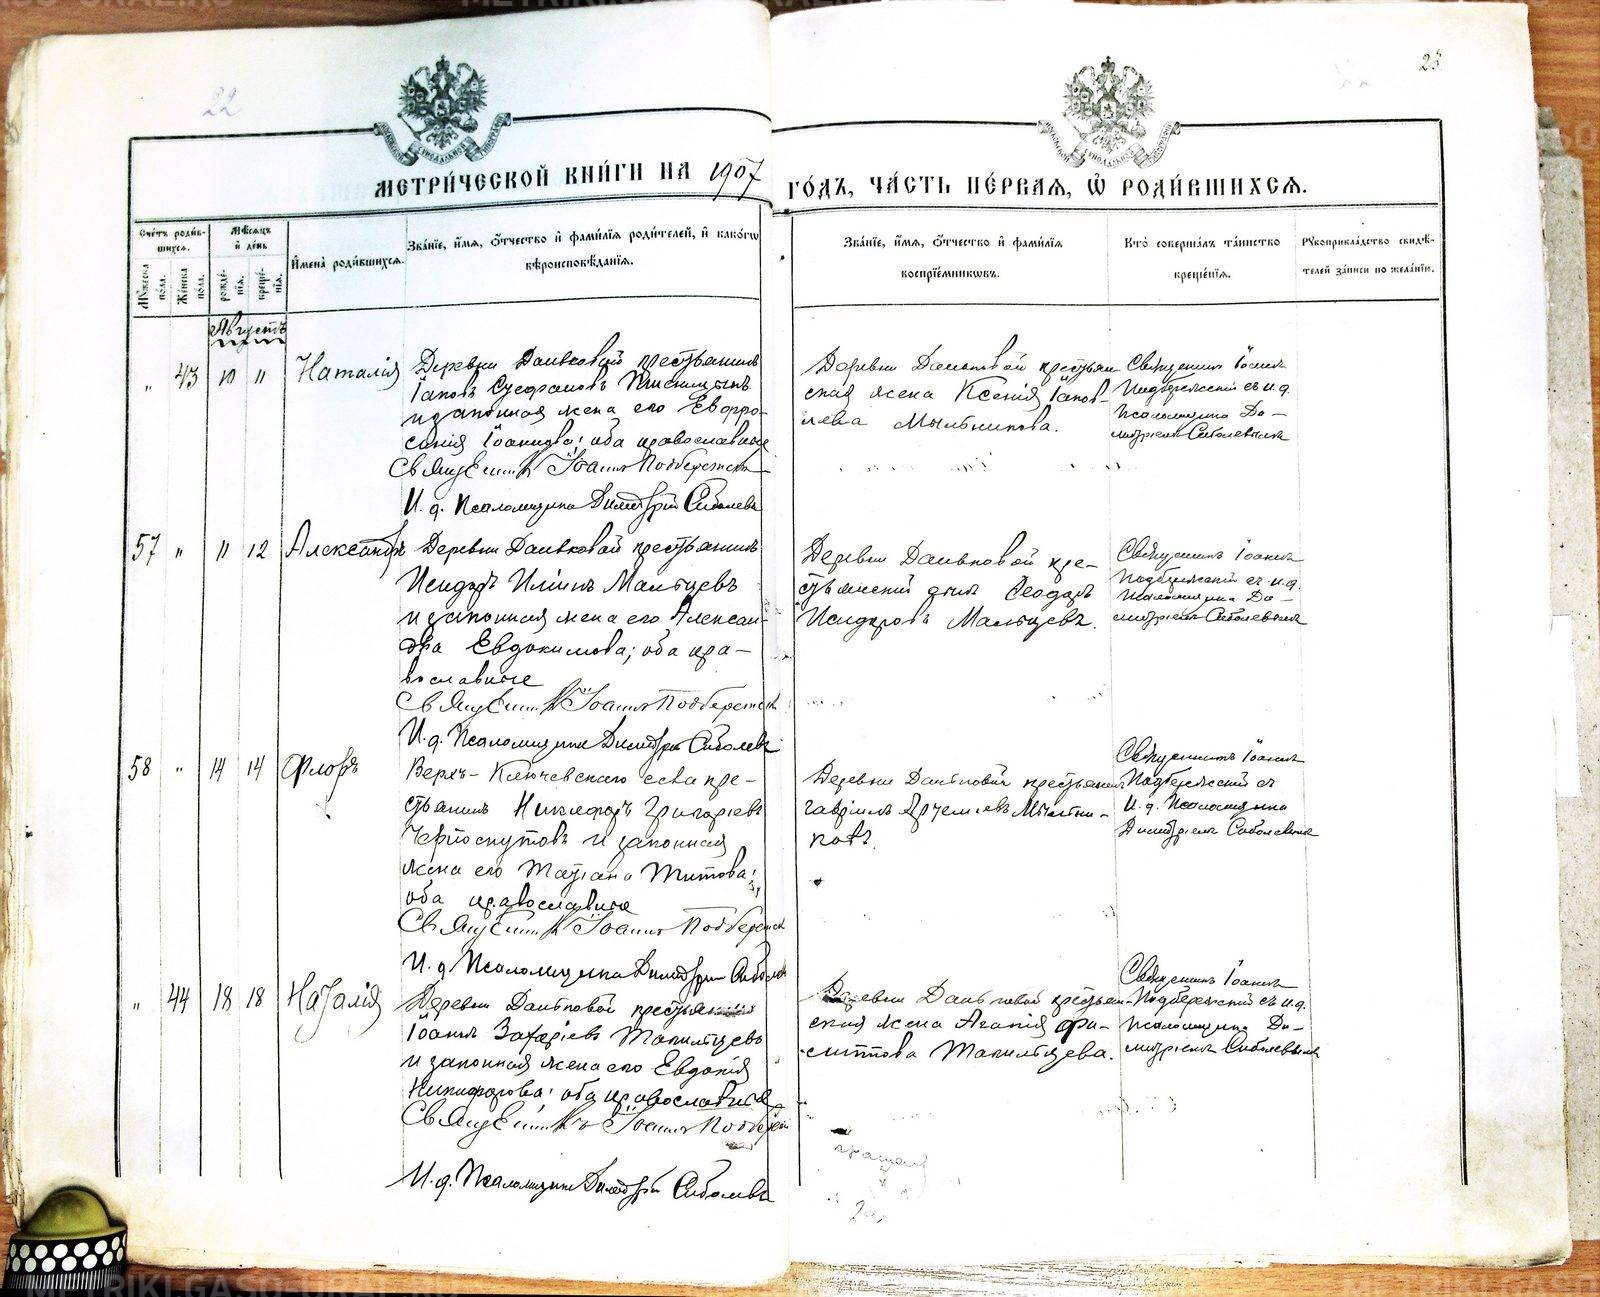 22
23
МЕТРИ́ЧЕСКОЙ КНИ́ГИ НА 1907 ГО́ДЪ, ЧА́СТЬ ПЕ́РВАЯ, Ѡ РОДИ́ВШИХСЯ.
Сче́тъ роди́в-
шихся.
Му́жеска по́ла.
Же́нска по́ла.
Мѣ́сяцъ и де́нь
рожде́-
нїя.
креще́-
нїя.
И҆мена̀ роди́вшихся.
Зва́нїе, и҆́мя, о҆́тчество и҆ фами́лїя роди́телей, и҆ како́гѡ
вѣроисповѣ́данїя.
Зва́нїе, и҆́мя, о҆́тчество и҆ фами́лїя
воспрїе́мниковъ.
Кто̀ соверша́лъ та́инство
креще́нїя.
Рꙋкоприкла́дство свидѣ́-
телей за́писи по жела́нїю.
Августъ
" 43 10 11 Наталія
Деревни Даньковой крестьянинъ
Іаковъ
и законная жена его Евфро-
синія оба православные
Священникъ Іоаннъ Подбережск
И. д. Псаломщика Димитрій Соболевъ
Деревни Даньковой крестьян-
ская жена Ксенія Іаков-
лева Мыльникова.
Священникъ Іоаннъ
Подбережскій съ и.д.
Псаломщика Ди-
митріемъ Соболевымъ
57 " 11 12 Александръ
Деревни Даньковой крестьянинъ
Исидоръ Иліинъ Мальцевъ
и законная жена его Алексан-
дра Евдокимова; оба пра-
вославные
Священникъ Іоаннъ Подбережск
И. д. Псаломщика Димитрій Соболевъ
Деревни Даньковой кре-
стьянскій сынъ Ѳеодоръ
Исидоровъ Мальцевъ.
Священникъ Іоаннъ
Подбережскій съ и.д.
Псаломщика Ди-
митріемъ Соболевымъ
58 " 14 14 Флоръ
Верхъ-Ключевскаго села кре-
стьянинъ Никифоръ Григоріевъ
и законная
жена его Татіана Титова;
оба православные
Священникъ Іоаннъ Подбережск
И. д. Псаломщика Димитрій Соболев
Деревни Даньковой крестьянинъ
Гавріилъ Артеміевъ Мыльни-
ковъ.
Священникъ Іоаннъ
Подбережскій съ
И. д. Псаломщика
Димитріемъ Соболевымъ
" 44 18 18 Наталія
Деревни Даньковой
Іоаннъ Захаріевъ Топильцевъ
и законная жена его Евдокія
Никифорова; оба православные
Священникъ Іоаннъ Подбереж
И. д. Псаломщика Димитрій Соболевъ
Деревни Даньковой крестьян-
ская жена Агапія Фи-
липпова Топильцева.
Священникъ Іоаннъ
Подбережскій съ и.д.
Псаломщика Ди-
митріемъ Соболевымъ